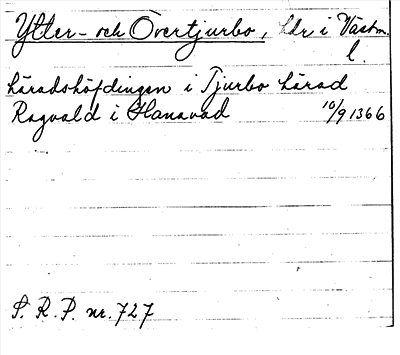 Ytter- och Övertjurbo, hdr i Västm.
l.
häradshöfdingen i Tjurbo härad
Ragvald i Hanavad 10/9 1366
S. R. P. nr. 727